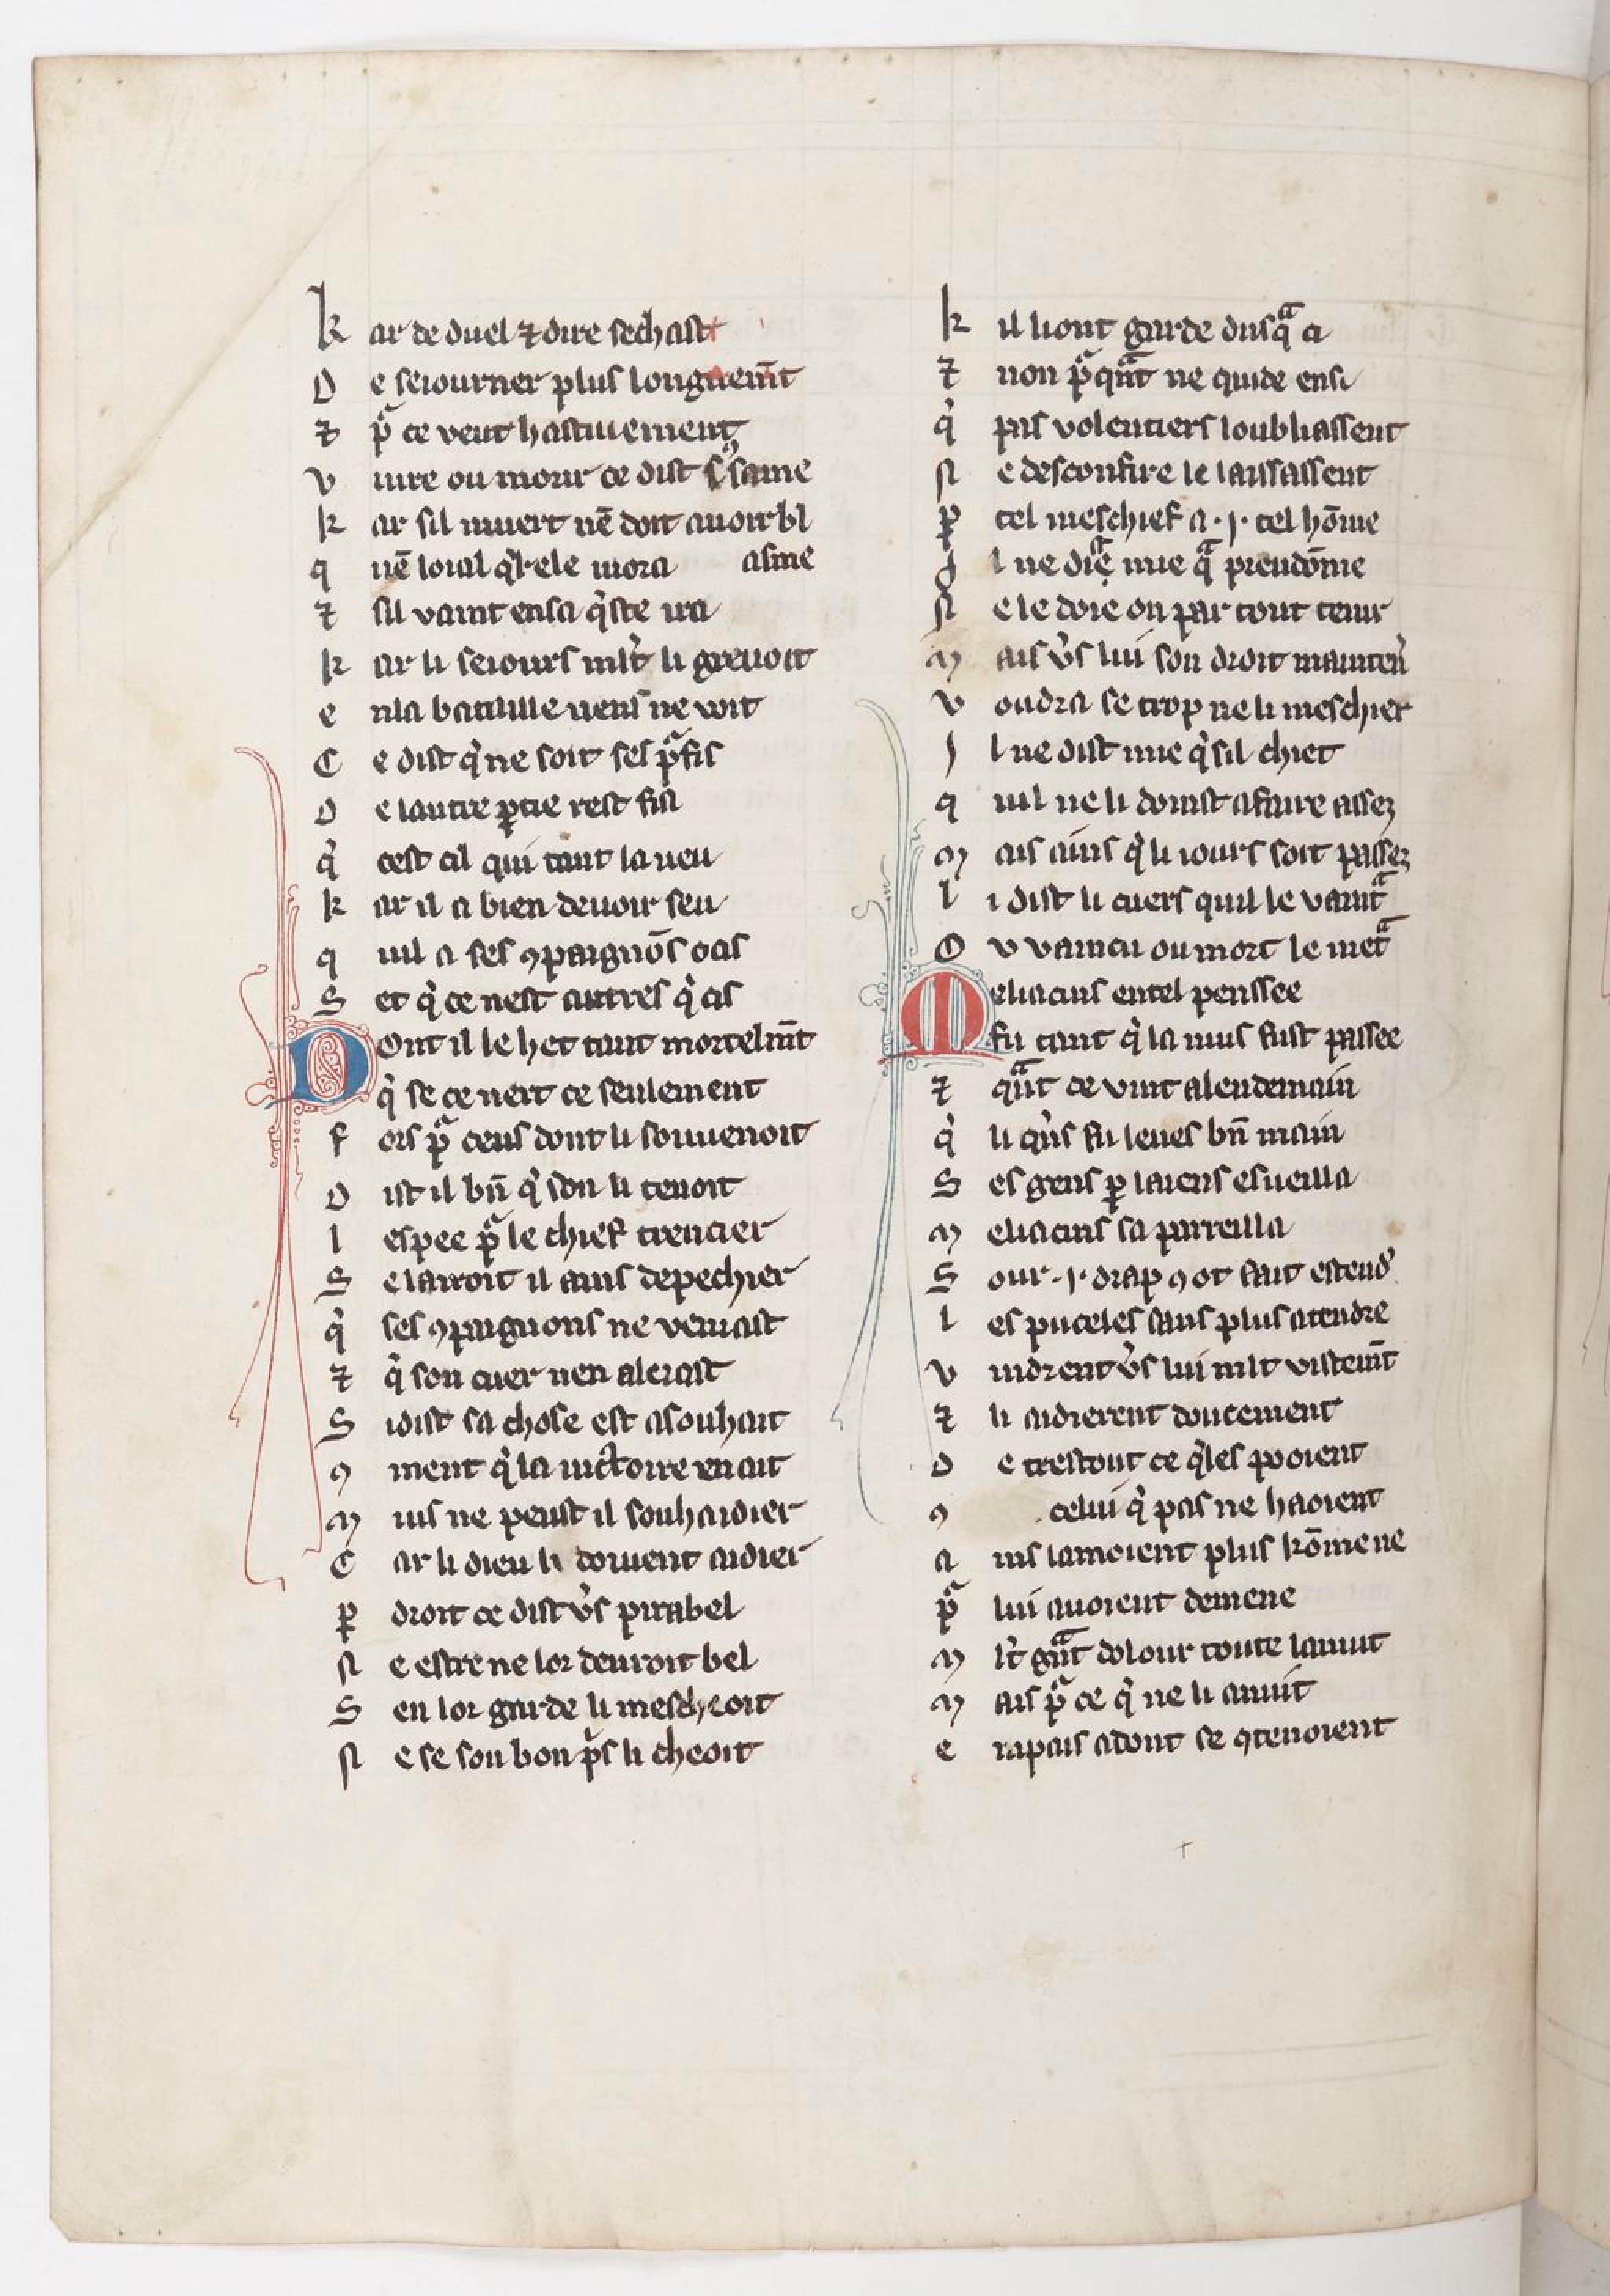 k ar de duel ⁊ dire sechast
D e seiourner plus longuem̅t
⁊ pᷓ ce veut hastiuement
v iure ou morir ce dist sa fame
k ar sil muert nē doit auoir bl
q nē loial q̓rele mora asme
⁊ sil vaint ensa q̓ste ira
k ar li seiours ml̓t li greuoit
e nla bataille riens ne voit
C e dist q̓ ne soit ses pᷓfis
D e lautre ꝑtie rest fis
q̓ cest cil qui tant la ueu
k ar il a bien deuoir seu
q uil a ses ꝯpaignōs ocis
S et q̓ ce nest autres q̓ cis
Dont il le het tant mortelm̅t
q̓ se ce nert ce seulement
f ors pᷓ ceus dont li souuenoit
D ist il bn̄ q̓ son li tenoit
l espee pᷓ le chief trencier
S e lairoit il ains depechier
q̓ ses ꝯpaignons ne veniast
⁊ q̓ son cuer nen alerast
S idist sa chose est asouhait
ꝯ ment q̓ la uictoire en ait
m ius ne peust il souhaidier
C ar li dieu li doiuent aidier
ꝑ droit ce dist v̓s pirabel
n e estre ne lor deuroit bel
S en lor garde li mescheoit
n e se son bon p̓s li cheoit
k il liont garde dusqᷓ a
⁊ non pᷓ qᷓnt ne quide ensi
q̓ pas volentiers loubliassent
n e desconfire le laissassent
ꝑ tel meschief a .i. tel hōme
J l ne diᷓe mie qᷓ preudōme
n e le doie on par tout tenir
m ais v̓s lui son droit mainten̓
v oudra se trop ne li meschiet
J l ne dist mie q̓ sil chiet
q uil ne li doinst afaire assez
m ais ains q̓ li iours soit passez
l i dist li cuers quil le vaintᷓ
O v vaincu ou mort le metᷓ
Meliacins entel penssee
fu tant q̓ la nuis fust passee
⁊ qᷓnt ce vint alendemain
q̓ li q̓ns fu leues bn̄ main
S es gens ꝑ laiens esueilla
m eliacins sa parreilla
S our .i. drap ꝯ ot fait estend̓
l es puceles sans plus atendre
v indrent v̓s lui mlt vistem̅t
⁊ li aidierent doucement
D e trestout ce q̓les pooient
ꝯ celui q̓ pas ne haoient
a ins lamoient plus kōme ne
pᷓ lui auoient demene
m l̓t gᷓnt dolour toute lanuit
m ais pᷓ ce q̓ ne li anuit
e rapais adont se ꝯtenoient